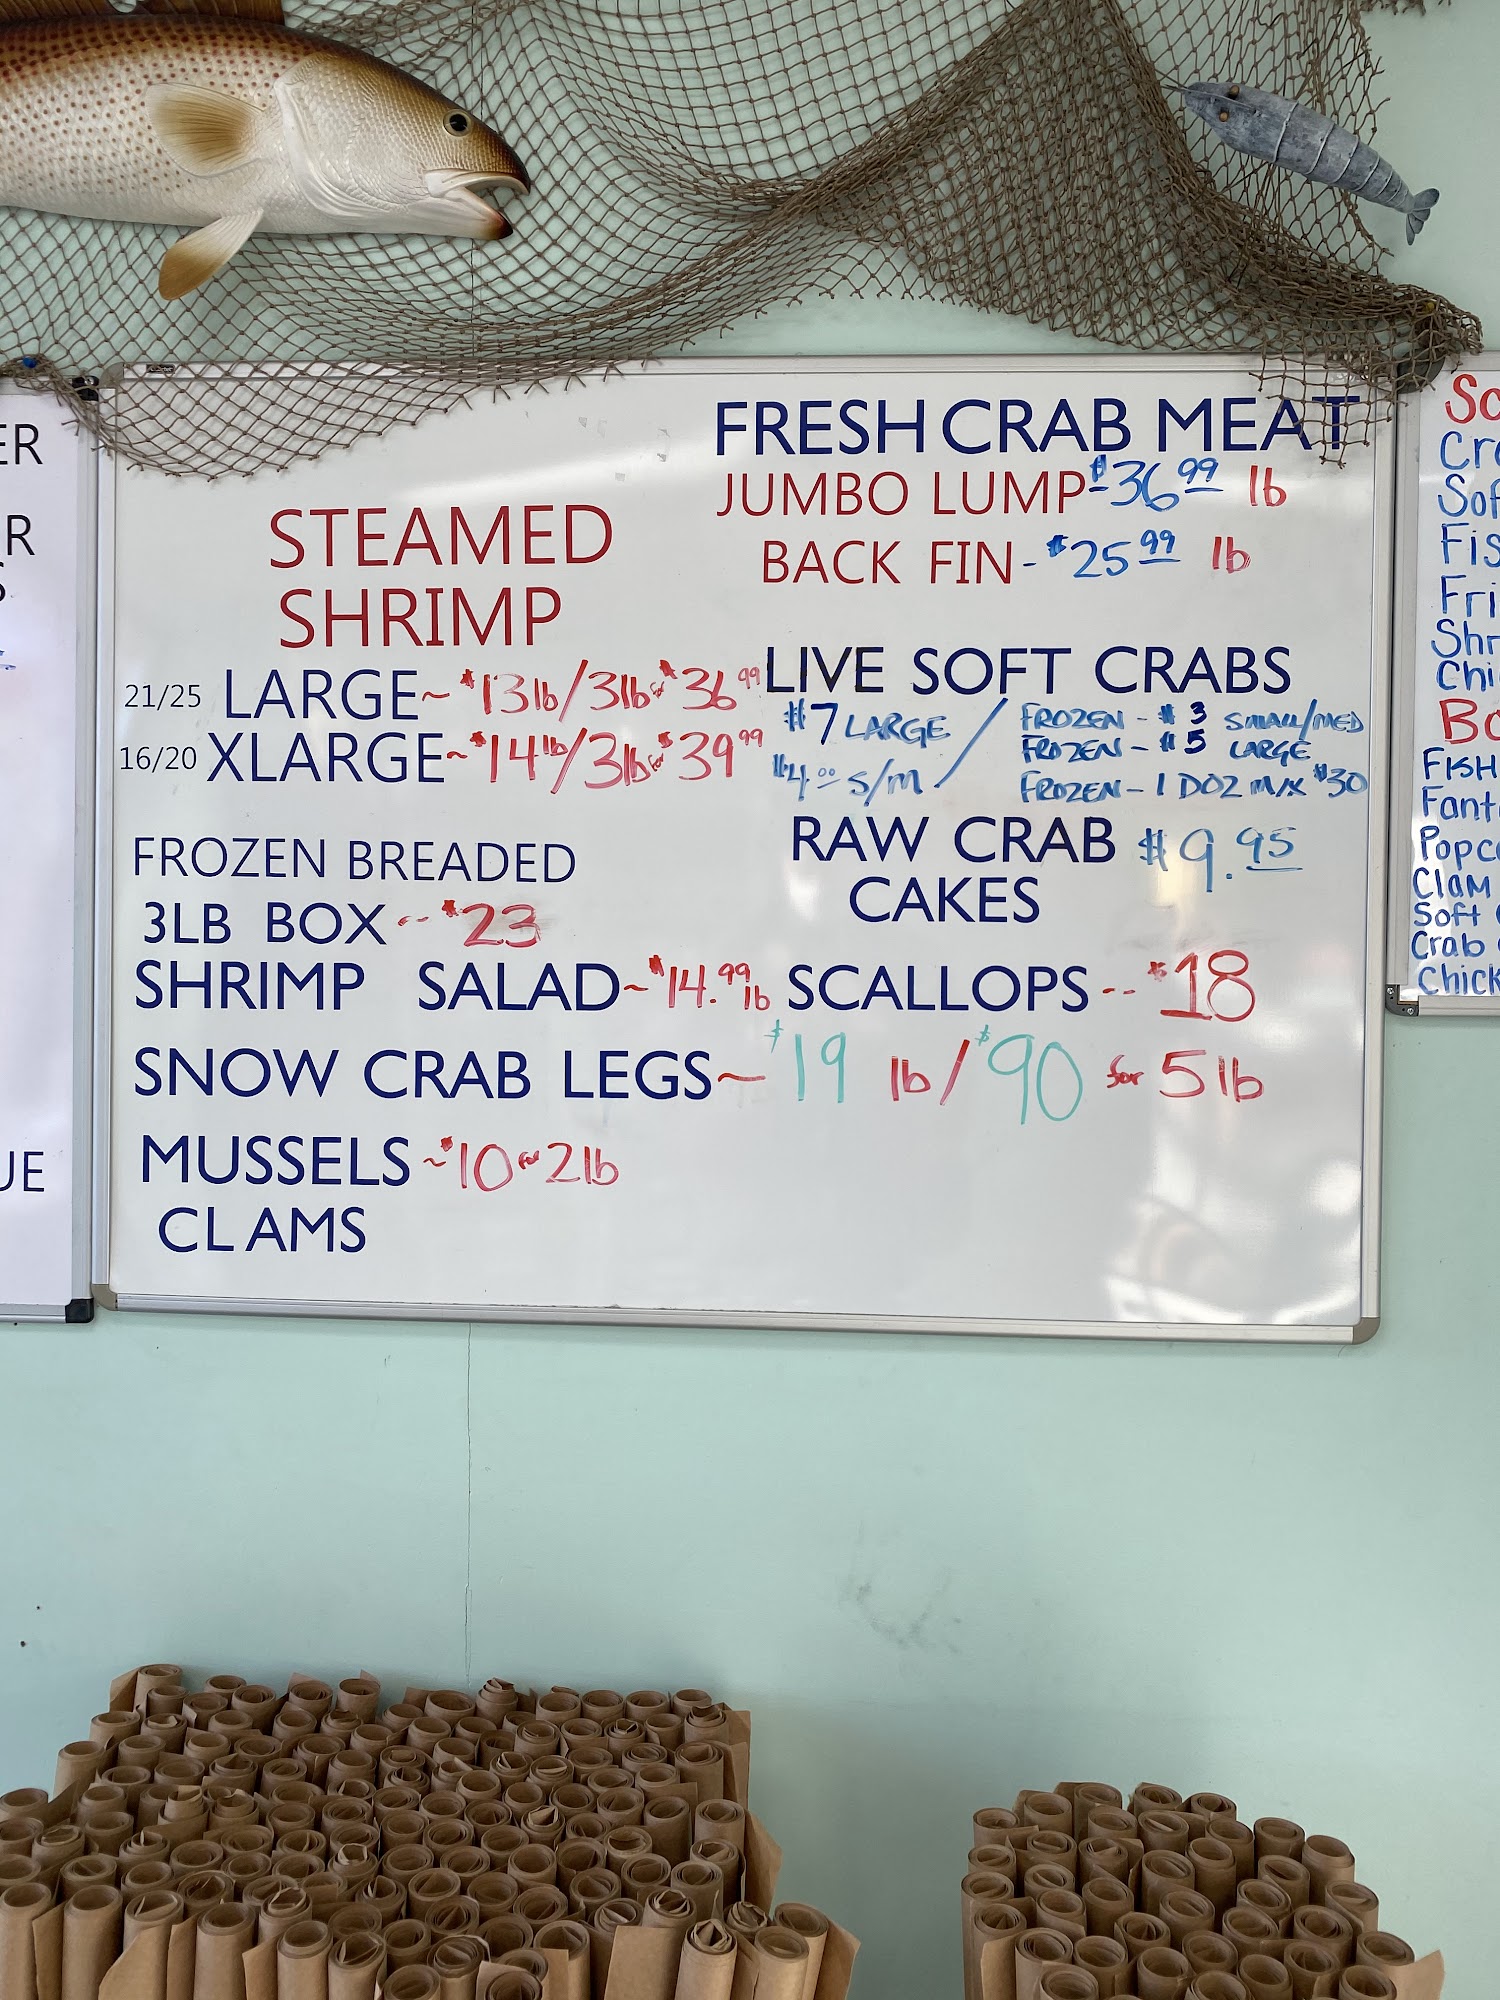 ER
R
S
UE
STEAMED
SHRIMP
21/25 LARGE ~ $13 lb/3lb for $36 99
16/20 XLARGE ~ $14 lb/3lb for $39 99
FROZEN BREADED
3LB BOX -- $23
SHRIMP SALAD ~ $14.99 lb
SNOW CRAB LEGS ~ $19 lb/$90 for 5 lb
MUSSELS ~ $10 for 2 lb
CLAMS
FRESH CRAB MEAT
JUMBO LUMP $36 99 lb
BACK FIN - $25 99 lb
LIVE SOFT CRABS
$7 LARGE / FROZEN - $3 SMALL/MED
FROZEN - $5 LARGE
$4.00 S/M FROZEN - 1 DOZ MIX $30
RAW CRAB $9.95
CAKES
SCALLOPS -- $18
So
Cra
Sof
Fis
Fri
Shr
Chi
Bo
FISH
Fant
Popco
Clam
Soft
Crab
Chick